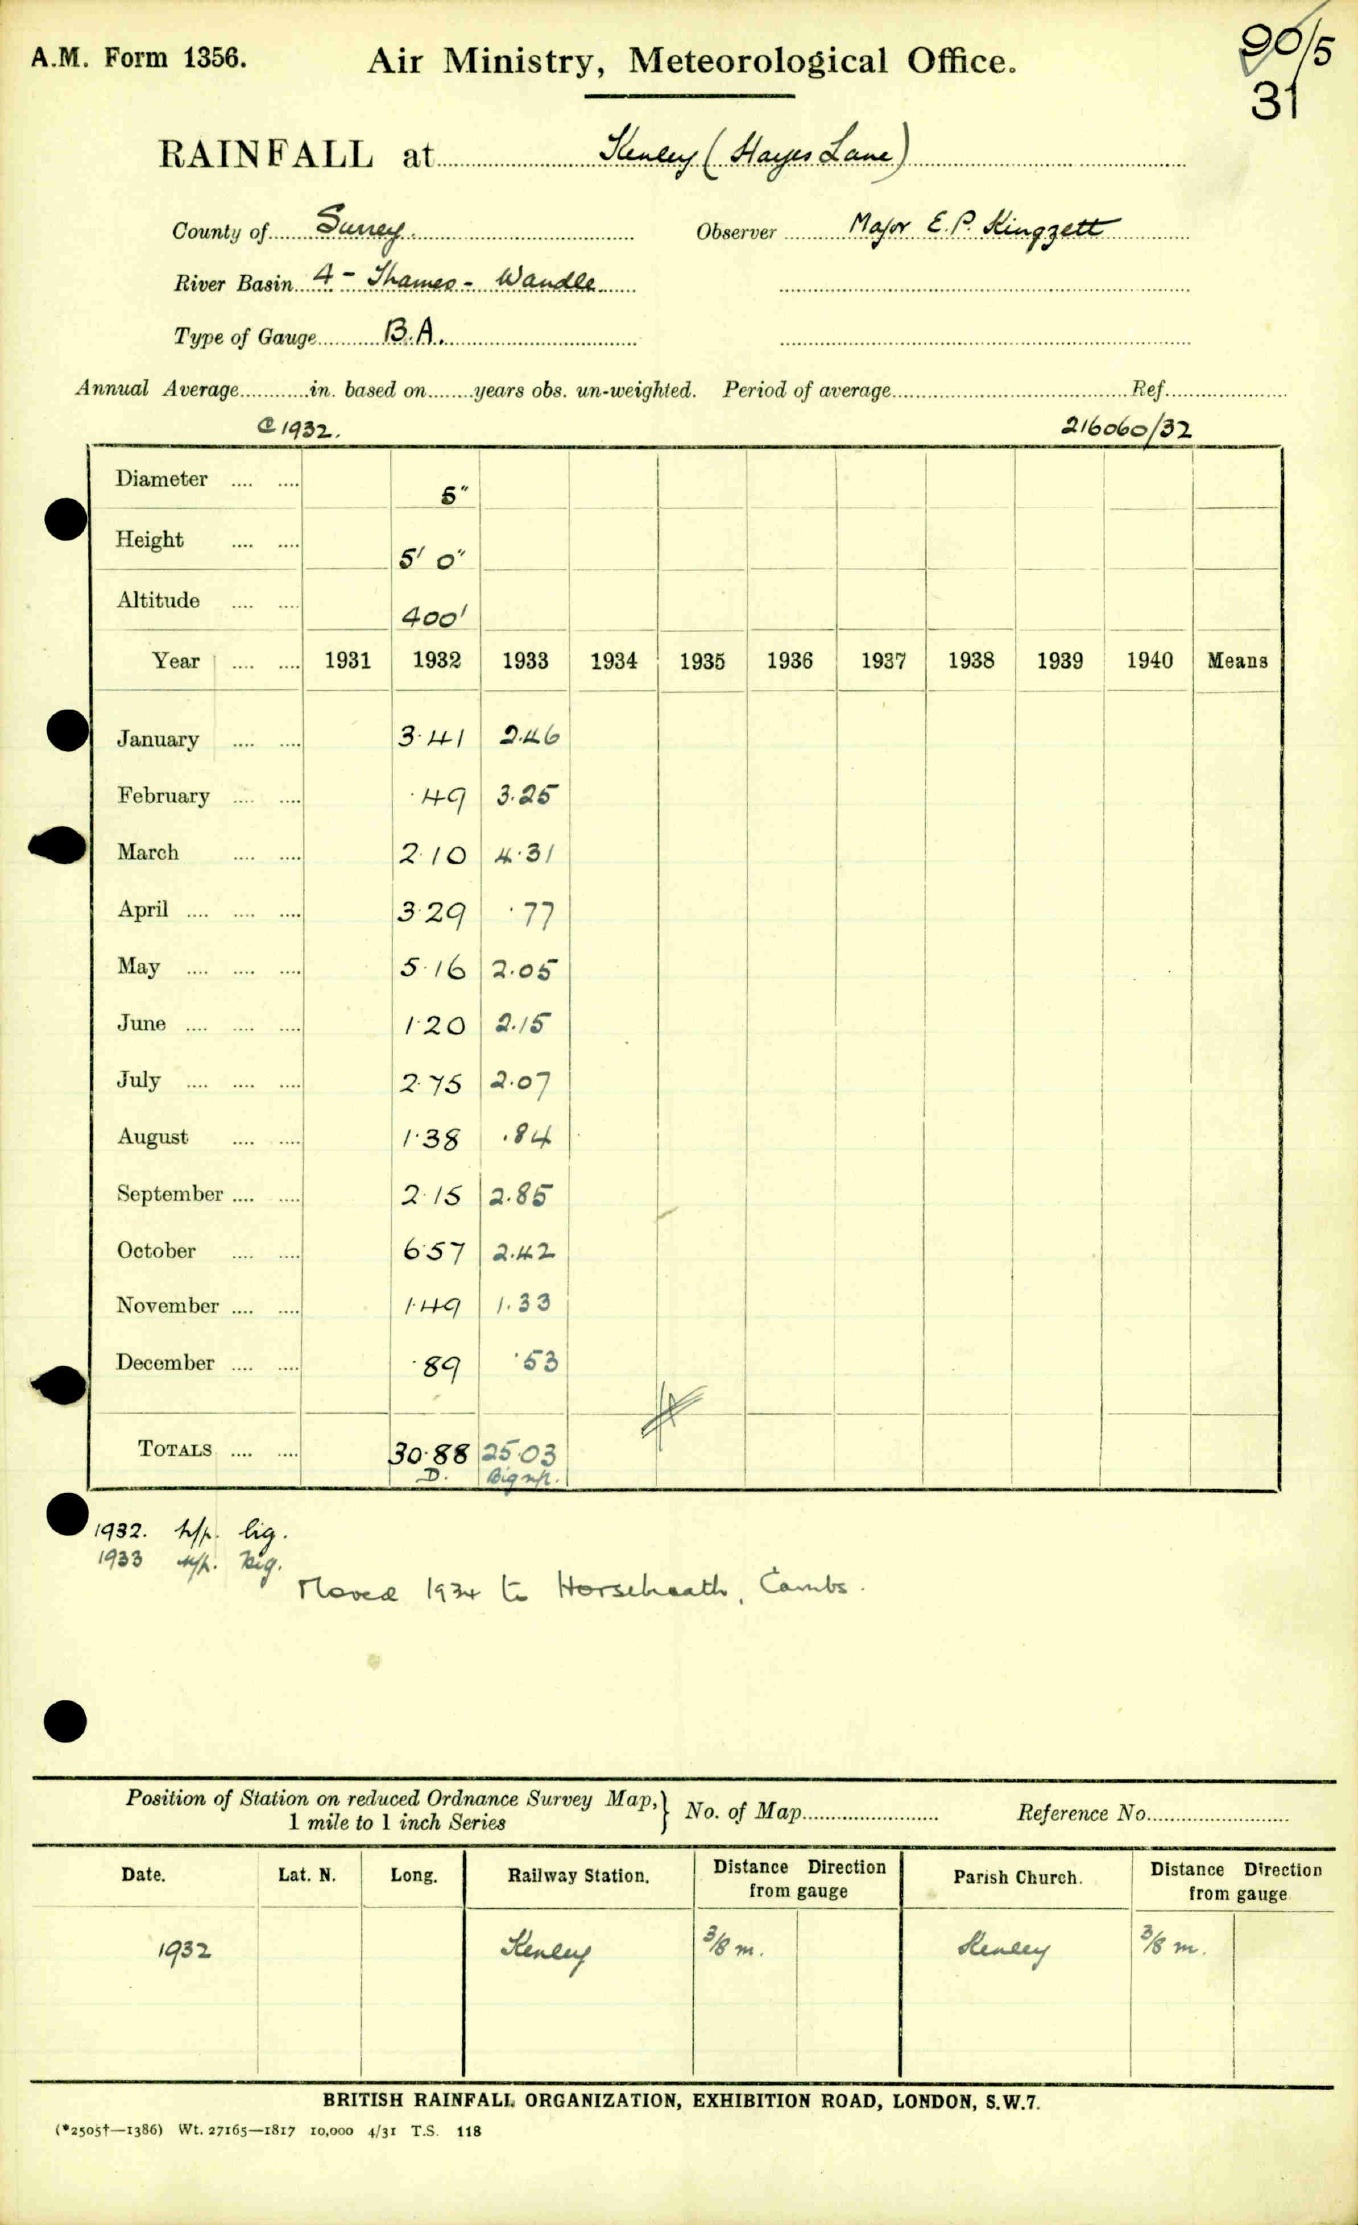 A.M. Form 1356.
Air Ministry, Meteorological Office.
90/5
31
RAINFALL at Kenley (Hayes Lane)
County of Surrey.
Observer Major E.P. Kingzett
River Basin 4 - Thames - Wandle
Type of Gauge B.A.
Annual Average in. based on years obs. un-weighted. Period of average Ref.
1932.
216060/32
Diameter 5"
Height 5' 0"
Altitude 400'
Year 1931 1932 1933 1934 1935 1936 1937 1938 1939 1940 Means
January 3·41 2.46
February ·49 3.25
March 2·10 4·31
April 3·29 ·77
May 5·16 2.05
June 1·20 2.15
July 2·75 2·07
August 1·38 ·84
September 2·15 2.85
October 6·57 2.42
November 1·49 1.33
December ·89 ·53
TOTALS 30·88 25·03
D. Big np.
1932. big.
1933 Big.
Moved 1934 to Horseheath, Cambs.
Position of Station on reduced Ordnance Survey Map,
1 mile to 1 inch Series
No. of Map
Reference No.
Date. Lat. N. Long. Railway Station. Distance Direction from gauge Parish Church. Distance Direction from gauge
1932 Kenley 3/8 m. Kenley 3/8 m.
BRITISH RAINFALL ORGANIZATION, EXHIBITION ROAD, LONDON, S.W.7.
(*2505†—1386) Wt. 27165—1817 10,000 4/31 T.S. 118